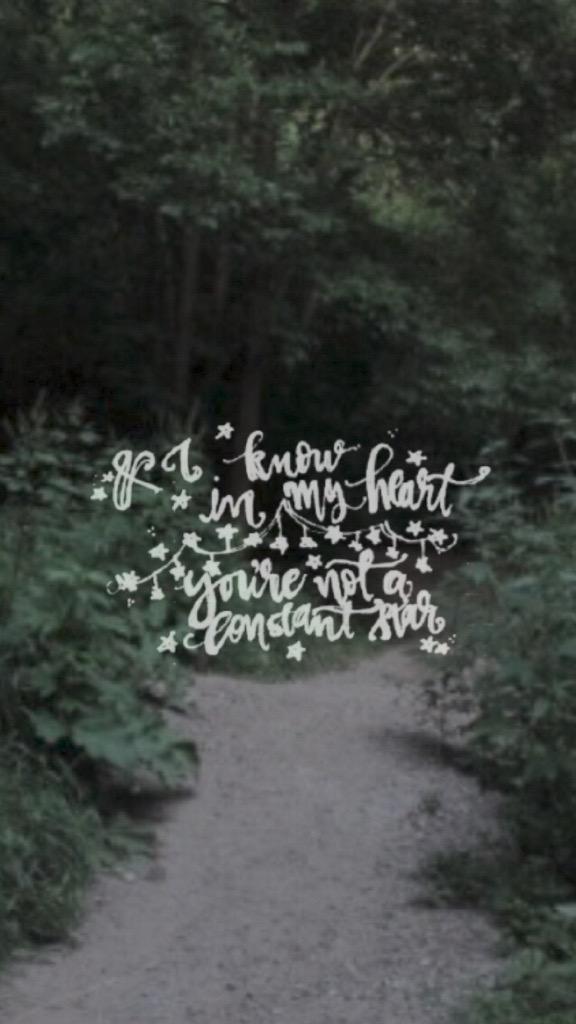 & I know
in my heart
you're not a
constant star